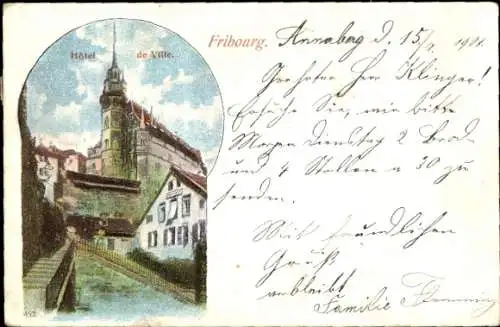 Hôtel de Ville.
Fribourg.
Annaberg d. 15/7. 1901.
Geehrter Herr Klinger!
Ersuche Sie, mir bitte
Morgen Dienstag 2 Brod
und 4 Stollen a 30 zu
senden.
Mit freundlichen
Gruß
anbleibt
Familie